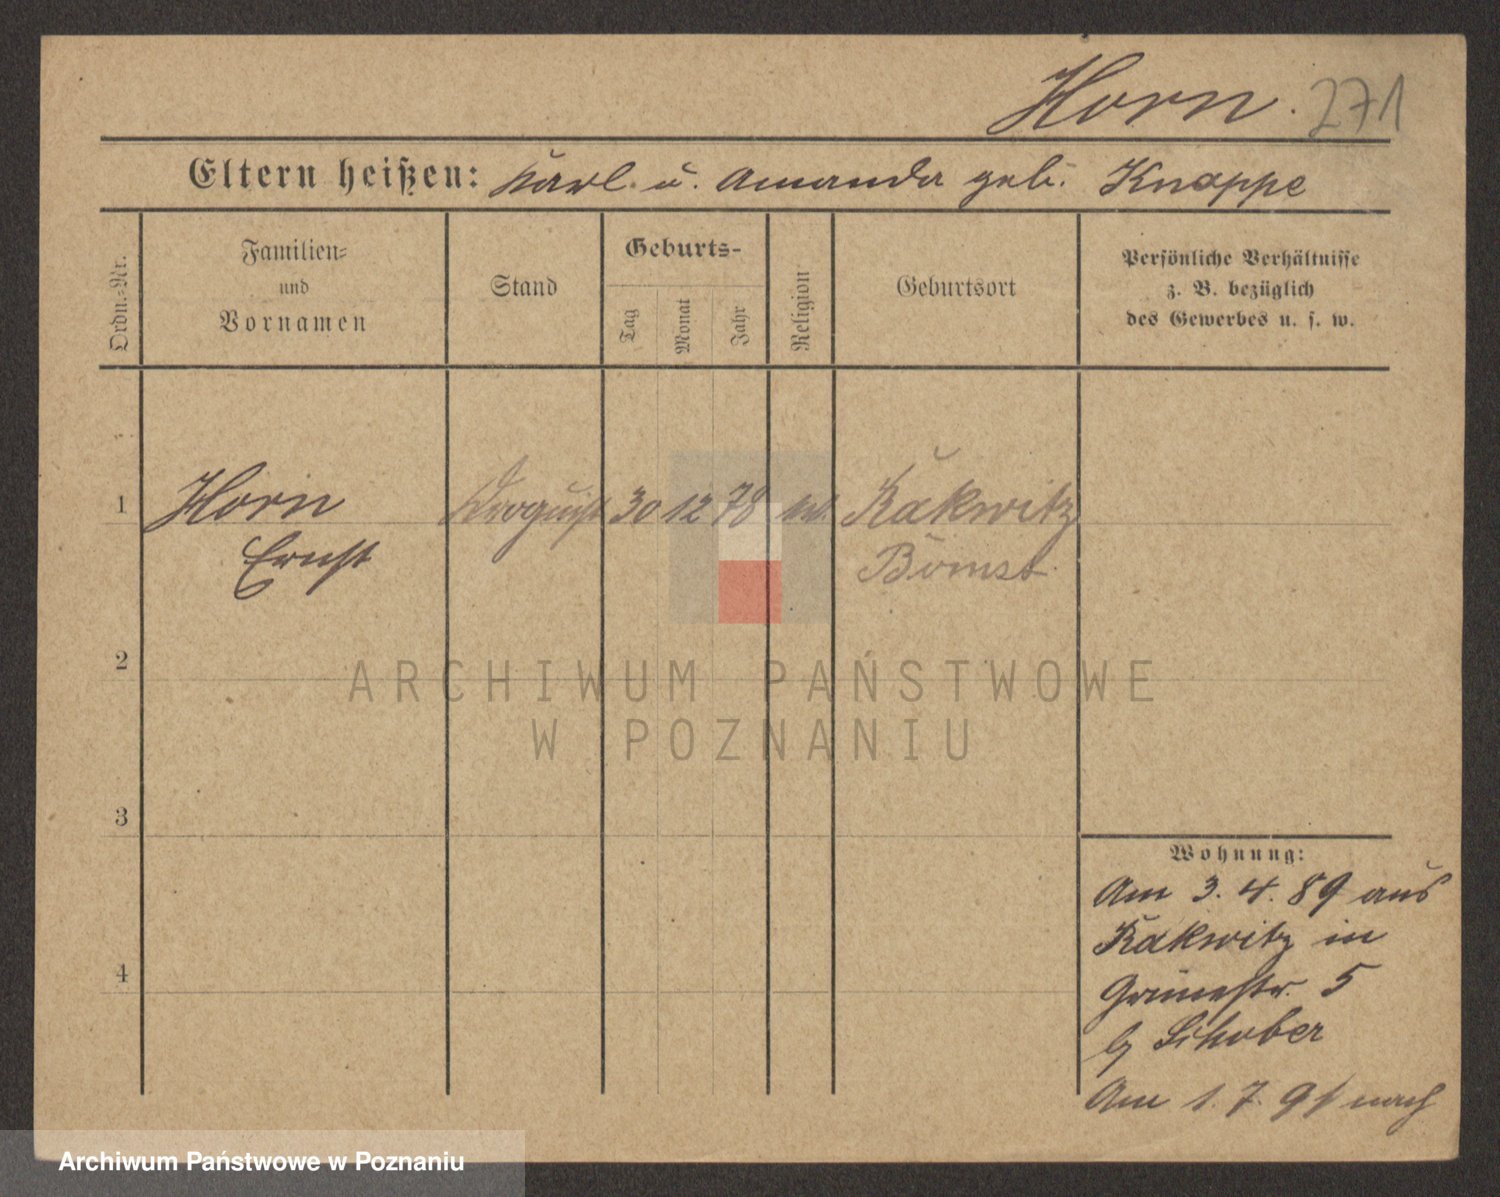 Horn. 271
Eltern heißen: Karl u. Amanda geb. Knappe
Ordn.-Nr.
Familien-
und
Vornamen
Stand
Geburts-
Tag
Monat
Jahr
Religion
Geburtsort
Persönliche Verhältnisse
z. B. bezüglich
des Gewerbes u. s. w.
1 Horn 30 12 78 Rakwitz
Ernst Bomst
2
ARCHIWUM PAŃSTWOWE
W POZNANIU
3
4
Wohnung:
Am 3. 4. 89 aus
Rakwitz in
Grünestr. 5
b/ Schober
Am 1. 7. 91 nach
Archiwum Państwowe w Poznaniu